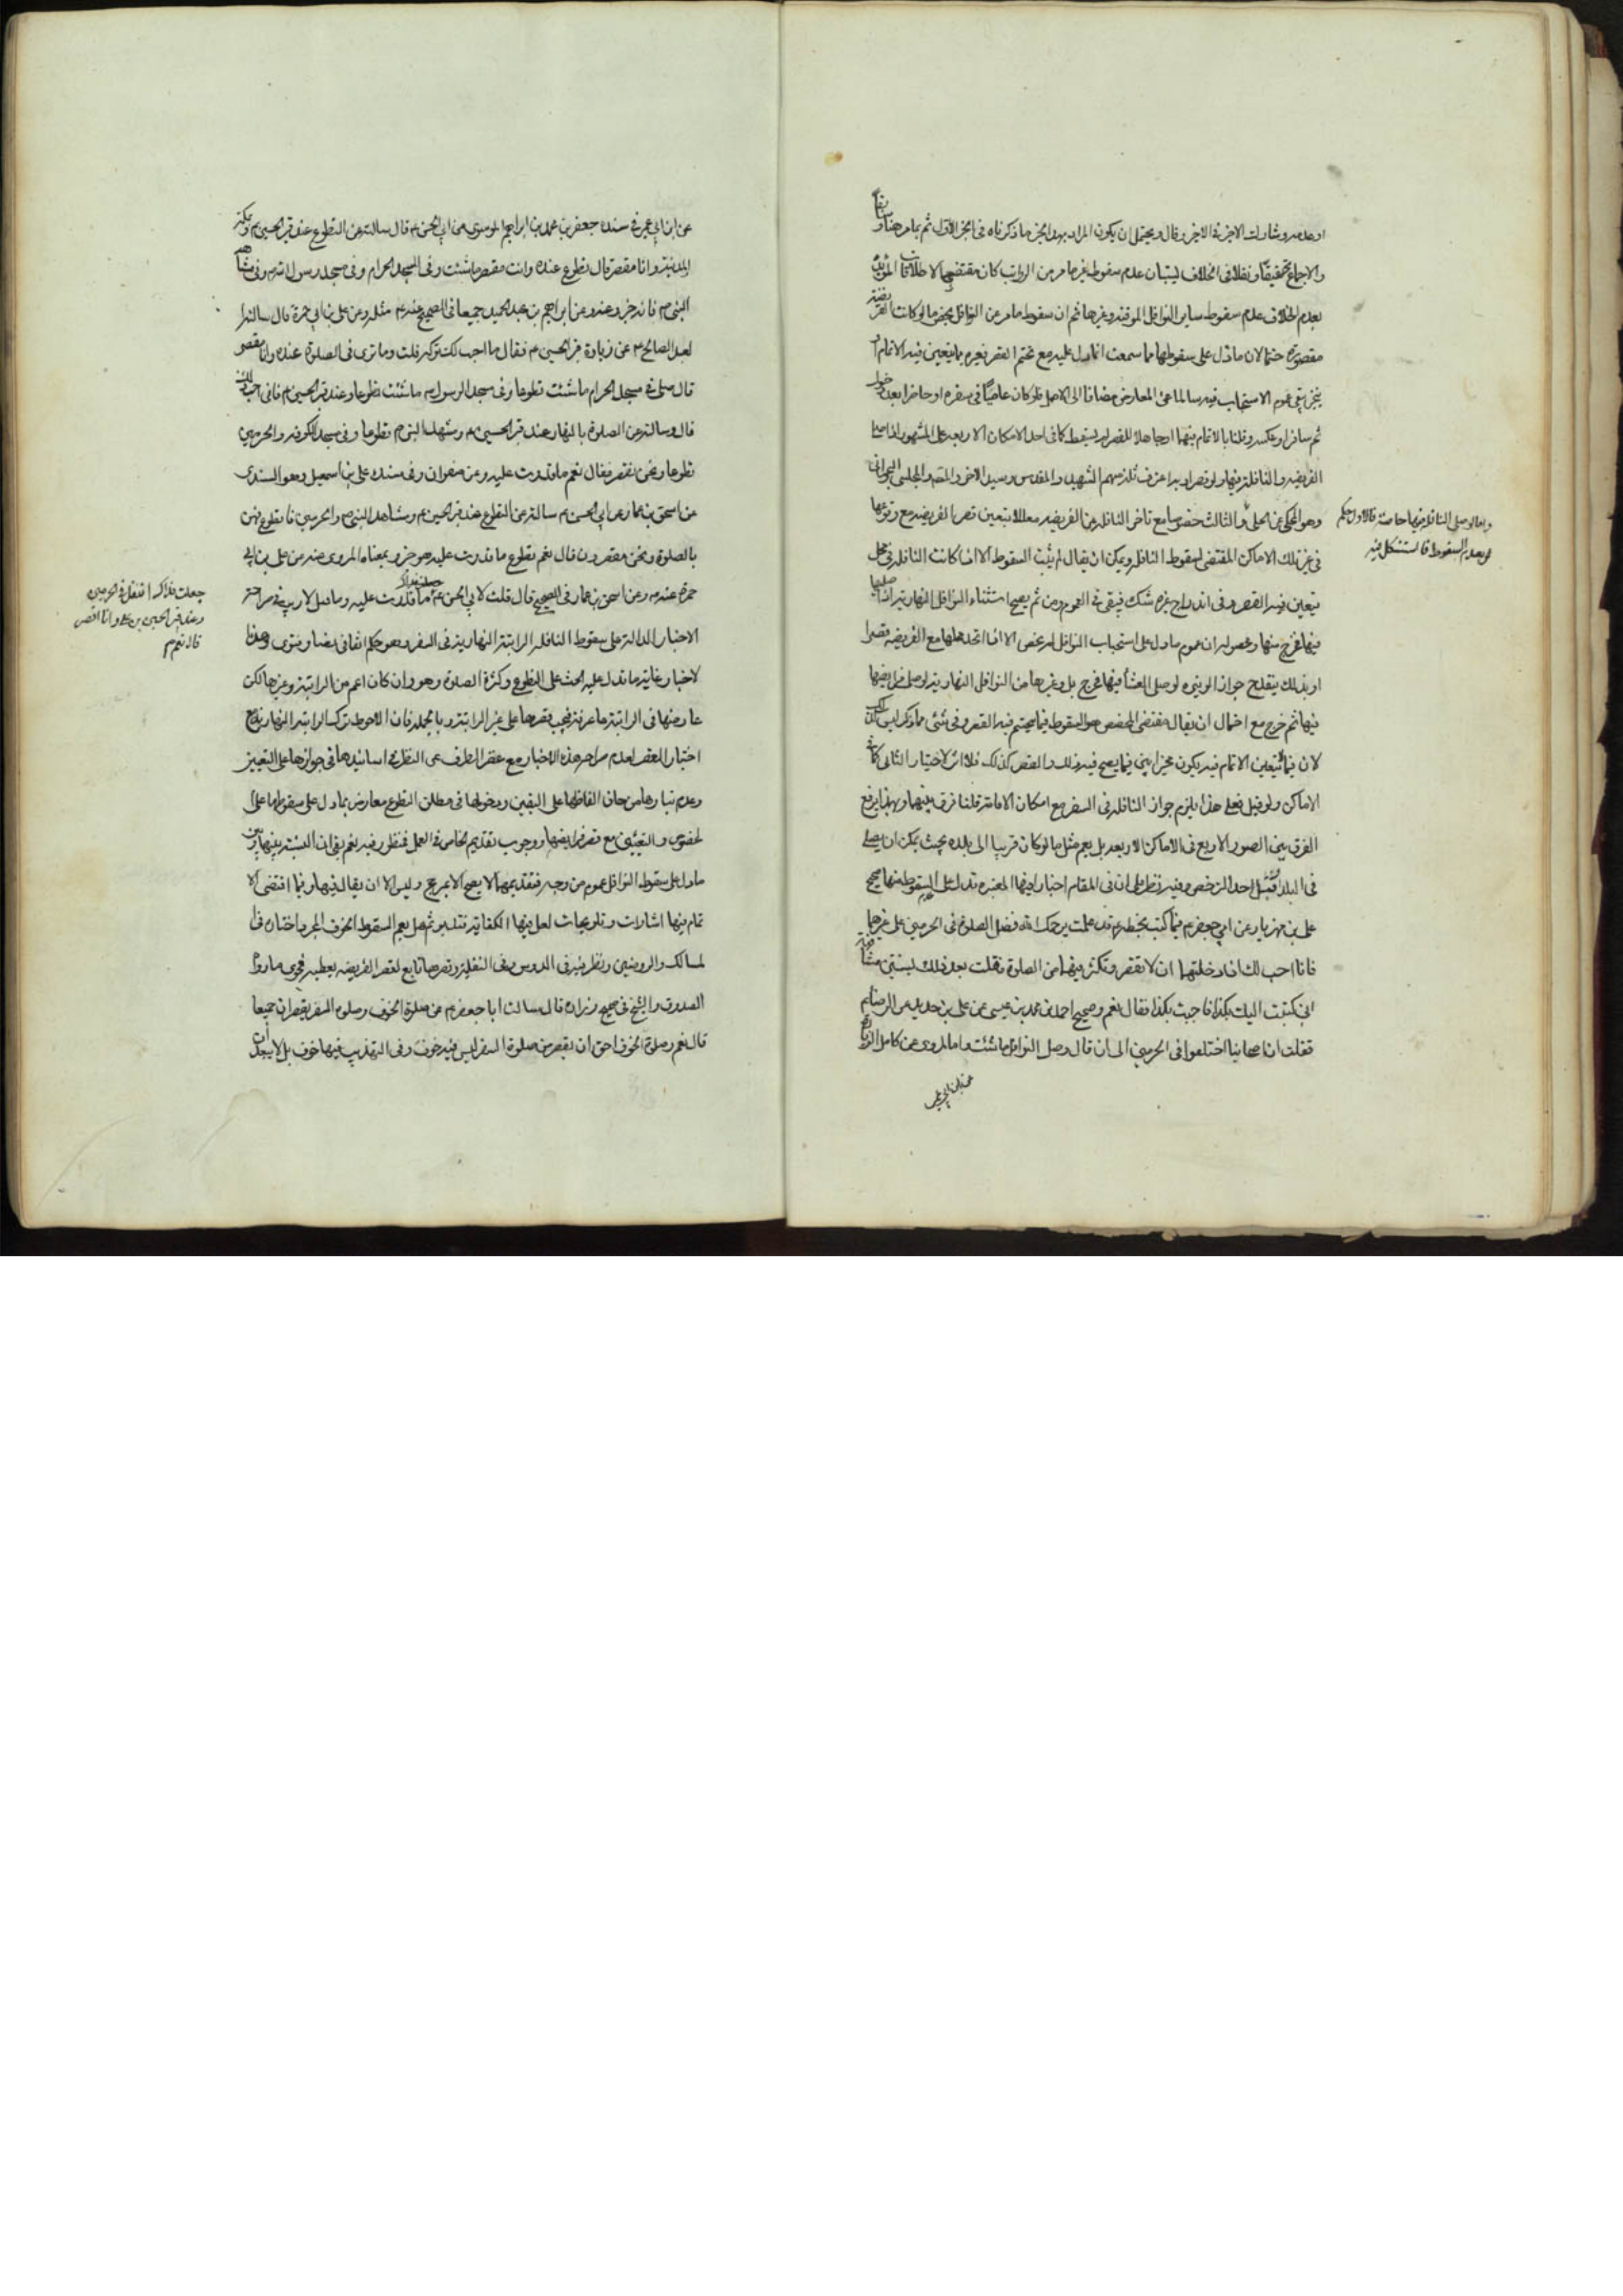 او عدمه وشارك الاخر في الاخر وقال ويحتمل ان يكون المراد بهذا الخبر ما ذكرناه في الخبر الاول ثم بما مر هنا وسابقاً
والاجماع تحقيقاً ونقلا في الخلاف ليتبان عدم سقوط غير ما مر من الرواتب كان مقتضى الاطلاقات المؤيدة
بعدم الخلاف عدم سقوط ساير النوافل الموقتة وغيرها ثم ان سقوط ما مر من النوافل يختص بما لو كانت الفريضة
مقصورة حتما لان ما دل على سقوطها مما سمعت انما دل عليه مع تحتم القصر فغيره مما يتعين فيه الاتمام او
يتخير يبقى عموم الاستحباب فيه سالما عن المعارض مضافا الى الاصل فلو كان عاصياً في سفره او حاضرا بعد دخول
ثم سافر او عكس وقلنا بالاتمام فيهما او جاهلا للقصر لم يسقط كما في احد الامكان الاربعة على المشهور اذا صلى
الفريضة والنافلة فيها ولو قصرا وبه اعترف ثلة منهم الشهيد والمقدس وسيد الاخر والمقدم والمجلسي والبحراني
وهو المحكي عن الحلي والثالث خصوصا مع تاخر النافلة عن الفريضة معللا بتعين قصر الفريضة مع وقوعها
في غير تلك الاماكن المقتضي لسقوط النافلة ويمكن ان يقال لم يثبت السقوط الا اذا كانت النافلة في محل
يتعين فيه القصر وفي اندراج غيره شك فيبقى في العموم ومن ثم يصح استثناء النوافل النهارية اذا صليها
فيها فخرج منها ومحصوله ان عموم ما دل على استحباب النوافل لم يخص الا اذا اتحد محلها مع الفريضة قصرا
او بذلك ينقدح جواز الوتيرة لو صلى العشاء فيها فخرج بل وغيرها من النوافل النهارية لو صلى فرايضها
فيها ثم خرج مع احتمال ان يقال مقتضى المخصص هو السقوط فيما يتحتم فيه القصر وفي شئ مما ذكر ليس كذلك
لان فيما يتعين الاتمام فيه يكون مخيرا بين فيما يصح فيه ذلك والقصر كذلك فلا اثر لاختيار الثاني كما في
الاماكن ولو قيل فعلى هذا يلزم جواز النافلة في السفر مع امكان الاقامة قلنا فرق بينهما وبهذا يرفع
الفرق بين الصور الاربع في الاماكن الاربعة بل يعم مثل ما لو كان قريبا الى بلده بحيث يمكن ان يصلى
في البلد قبل احد الرخص وفيه نظر على ان في المقام اخبارا فيها المعتبرة تدل على عدم السقوط منها صحيح
على بن مهزيار عن ابي جعفر م فيما كتب بخطه م قد علمت يرحمك الله فضل الصلوة في الحرمين على غيرهما
فانا احب لك اذا دخلتهما ان لا تقصر وتكثر فيهما من الصلوة فقلت بعد ذلك بسنتين مشافهة
اني كتبت اليك بكذا فاجبت بكذا فقال نعم وصحيح احمد بن محمد بن عيسى عن على بن حديد عن الرضا م
فقلت ان اصحابنا اختلفوا في الحرمين الى ان قال وصل النوافل ما شئت واما المروي عن كامل الزيارة
عن ابن ابي عمير
واما لو صلى النافلة فيها خاصة فالاول حكم
بعدم السقوط فاستشكل فيه
عن ابن ابي عمير في سنده جعفر بن محمد بن ابراهيم الموسوي عن ابي الحسن م قال سالته عن التطوع عند قبر الحسين م وبمكة
والمدينة وانا مقصر قال تطوع عنده وانت مقصر ما شئت وفي المسجد الحرام وفي مسجد رسول الله ص وفي مشاهد
النبي ص فانه خير وعنه وعن ابراهيم بن عبد الحميد جميعا في الصحيح عنه م مثله وعن على بن ابي حمزة قال سالت
لعبد الصالح م عن زيارة قبر الحسين م فقال ما احب لك تركه قلت وما ترى في الصلوة عنده وانا مقصر
قال صل في مسجد الحرام ما شئت تطوعا وفي مسجد الرسول ص ما شئت تطوعا وعند قبر الحسين م فاني احب ذلك
قال وسالته عن الصلوة بالنهار عند قبر الحسين م ومشهد النبي ص تطوعا وفي مسجد الكوفة والحرمين
تطوعا ونحن نقصر فقال نعم ما قدرت عليه وعن صفوان وفي سنده على بن اسمعيل وهو السندي
عن اسحق بن عمار عن ابي الحسن م سالته عن التطوع عند قبر الحسين م ومشاهد النبي ص والحرمين والتطوع فيهن
بالصلوة ونحن مقصرون قال نعم تطوع ما قدرت عليه هو خير وبمعناه المروي عنه عن على بن ابي
حمزة عنه م وعن اسحق بن عمار في الصحيح قال قلت لابي الحسن م ما قدرت عليه وما قبل لا ريب في صراحة
الاخبار الدالة على سقوط النافلة الراتبة النهارية في السفر وهو حكم اتفاقي نصا وفتوى وهذه
لاخبار غاية ما تدل عليه الحث على التطوع وكثرة الصلوة وهو وان كان اعم من الراتبة وغيرها لكن
عارضها في الراتبة ما عرفته فيجب قصرها على غير الراتبة وبالجملة فان الاحوط ترك الراتبة النهارية مع
اختيار القصر لعدم صراحة هذه الاخبار مع غض الطرف عن النظر في اسانيدها في جوازها على التعيين
وعدم تبادرها من حاق الفاظها على اليقين ودخولها في مطلق التطوع معارض بما دل على سقوطها على
لخصوص والتعيين مع قصر فرايضها ووجوب تقديم الخاص في العمل فمنظور فيه نعم يبقى ان النسبة بينها وبين
ما دل على سقوط النوافل عموم من وجه فتقديمها لا يصح الا بمرجح وليس الا ان يقال فيها وفيما اقتضى الا
تمام فيها اشارات وتلويحات لعل فيها الكفاية فتدبر ثم هل يعم السقوط الخوف المجرد اختاره في
لمسالك والروضتين ونظر فيه في الدروس وفي النفلية وقصرها تابع لقصر الفريضة يعطيه فحوى ما رواه
الصدوق والشيخ في صحيح زرارة قال سالت ابا جعفر م عن صلوة الخوف وصلوة السفر يقصران جميعا
قال نعم وصلوة الخوف احق ان يقصر من صلوة السفر ليس فيه خوف وفي التهذيب فيها خوف بل لا يبعد ان
جعلت فداك اتنفل في الحرمين
وعند قبر الحسين بن على وانا اقصر
قال نعم م